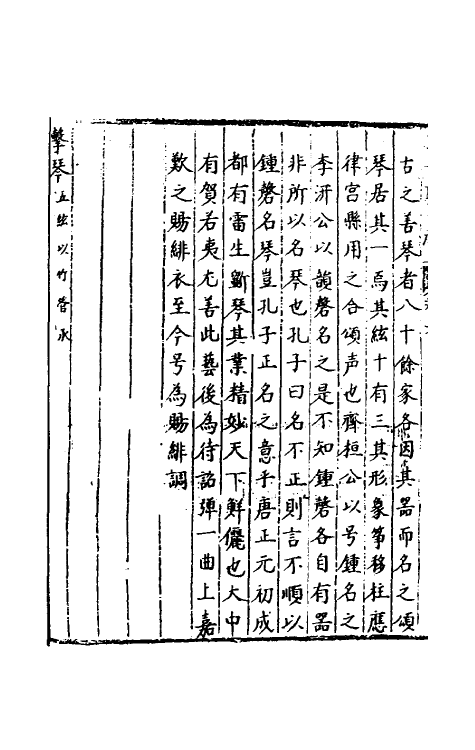 古之善琴者八十餘家各因其器而名之頌
琴居其一焉其絃十有三其形象箏移柱應
律宫縣用之合頌声也齊桓公以号鍾名之
李汧公以韻磬名之是不知鍾磬各自有器
非所以名琴也孔子曰名不正則言不順以
鍾磬名琴豈孔子正名之意乎唐正元初成
都有雷生斵琴其業精妙天下鮮儷也大中
有賀若夷尤善此藝後為待詔彈一曲上嘉
歎之賜緋衣至今号為賜緋調
擊琴 五絃以竹管承